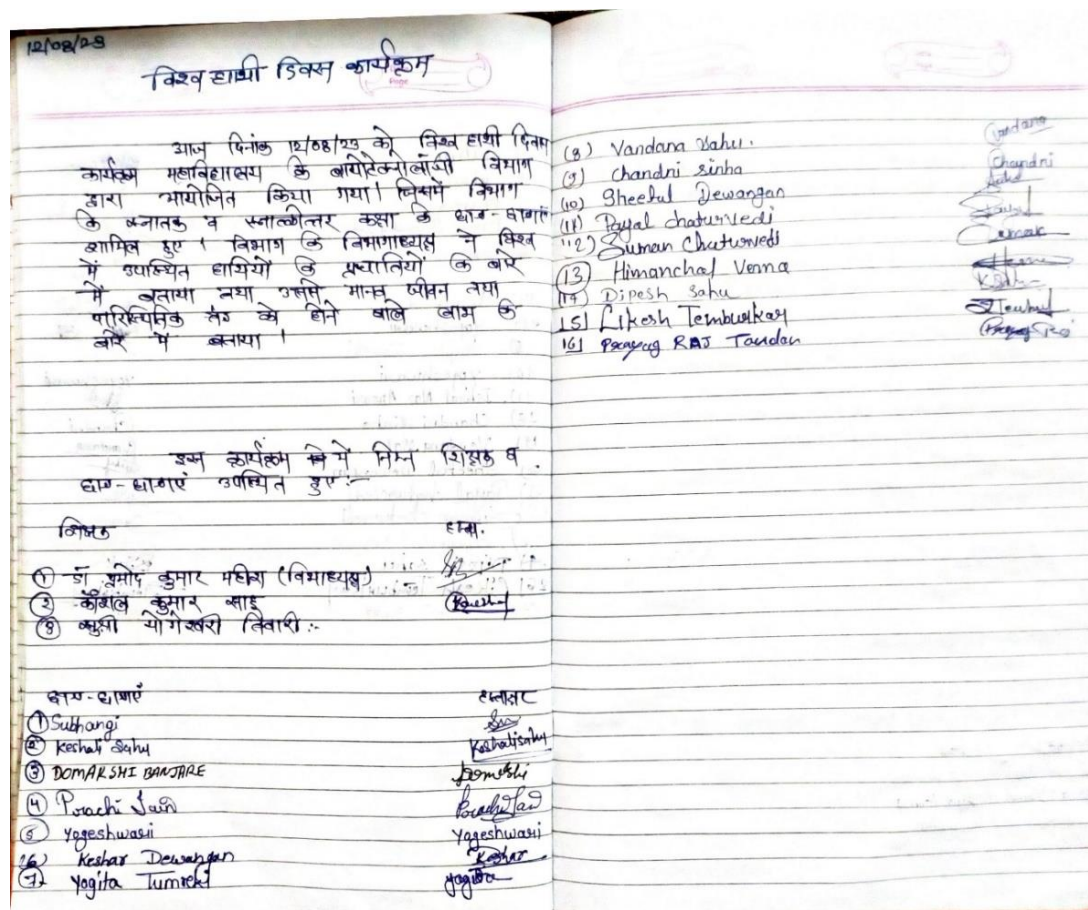 12/08/23
विश्व हाथी दिवस कार्यक्रम
आज दिनांक 12/08/23 को विश्व हाथी दिवस
कार्यक्रम महाविद्यालय के बायोटेक्नोलॉजी विभाग
द्वारा आयोजित किया गया। जिसमें विभाग
के स्नातक व स्नातकोत्तर कक्षा के छात्र-छात्राएं
शामिल हुए। विभाग के विभागाध्यक्ष ने विश्व
में उपस्थित हाथियों के प्रजातियों के बारे
में बताया तथा उससे मानव जीवन तथा
पारिस्थितिक तंत्र को होने वाले लाभ के
बारे में बताया।
इस कार्यक्रम में निम्न शिक्षक व
छात्र-छात्राएं उपस्थित हुए:-
शिक्षक हस्ता.
① डॉ प्रमोद कुमार महीश (विभाध्यक्ष)
② कौशल कुमार साहू
③ सुश्री योगेश्वरी तिवारी :-
छात्र-छात्राएं हस्ताक्षर
① Subhangi
② Keshali Sahu Keshalisahu
③ DOMAKSHI BANJARE
④ Prachi Jain Prachi Jain
⑤ Yogeshwari Yogeshwari
(6) Keshar Dewangan Keshar
⑦ Yogita Tumreki Yogita
(8) Vandana Sahu. Vandana
(9) Chandni Sinha Chandni
(10) Sheetal Dewangan
(11) Payal chaturvedi
(12) Suman Chaturvedi Suman
(13) Himanchal Verma
(14) Dipesh Sahu
15) Likesh Temburkar
16) Prayag RAJ Tandan